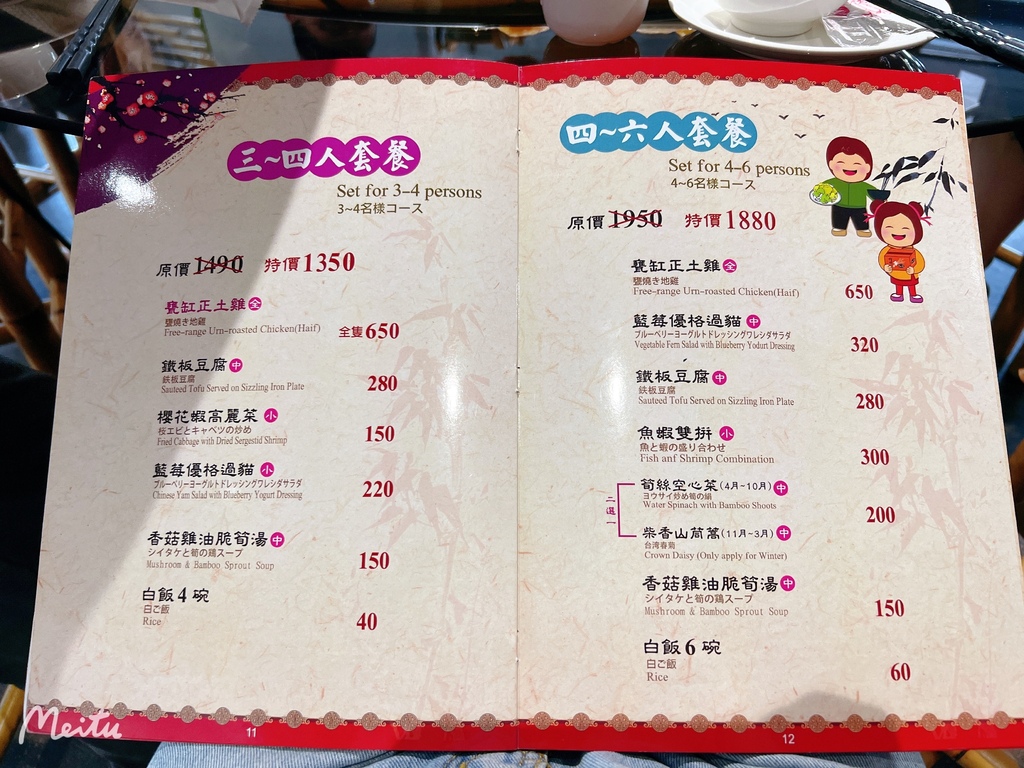 三~四人套餐
Set for 3-4 persons
3~4名様コース
原價1490 特價1350
甕缸正土雞 全
甕燒き地雞
Free-range Urn-roasted Chicken(Haif) 全隻650
鐵板豆腐 中
鉄板豆腐
Sauteed Tofu Served on Sizzling Iron Plate 280
櫻花蝦高麗菜 小
桜エビとキャベツの炒め
Fried Cabbage with Dried Sergestid Shrimp 150
藍莓優格過貓 小
ブルーベリーヨーグルトドレッシングワレシダサラダ
Chinese Yam Salad with Blueberry Yogurt Dressing 220
香菇雞油脆筍湯 中
シイタケと筍の鶏スープ
Mushroom & Bamboo Sprout Soup 150
白飯4碗
白ご飯
Rice 40
11
四~六人套餐
Set for 4-6 persons
4~6名様コース
原價1950 特價1880
甕缸正土雞 全
甕燒き地雞
Free-range Urn-roasted Chicken(Haif) 650
藍莓優格過貓 中
ブルーベリーヨーグルトドレッシングワレシダサラダ
Vegetable Fern Salad with Blueberry Yodurt Dressing 320
鐵板豆腐 中
鉄板豆腐
Sauteed Tofu Served on Sizzling Iron Plate 280
魚蝦雙拼 小
魚と蝦の盛り合わせ
Fish anf Shrimp Combination 300
二選一
筍絲空心菜(4月~10月) 中
ヨウサイ炒め筍の絹
Water Spinach with Bamboo Shoots 200
柴香山茼蒿(11月~3月) 中
台湾春菊
Crown Daisy (Only apply for Winter)
香菇雞油脆筍湯 中
シイタケと筍の鶏スープ
Mushroom & Bamboo Sprout Soup 150
白飯6碗
白ご飯
Rice 60
12
Meitu